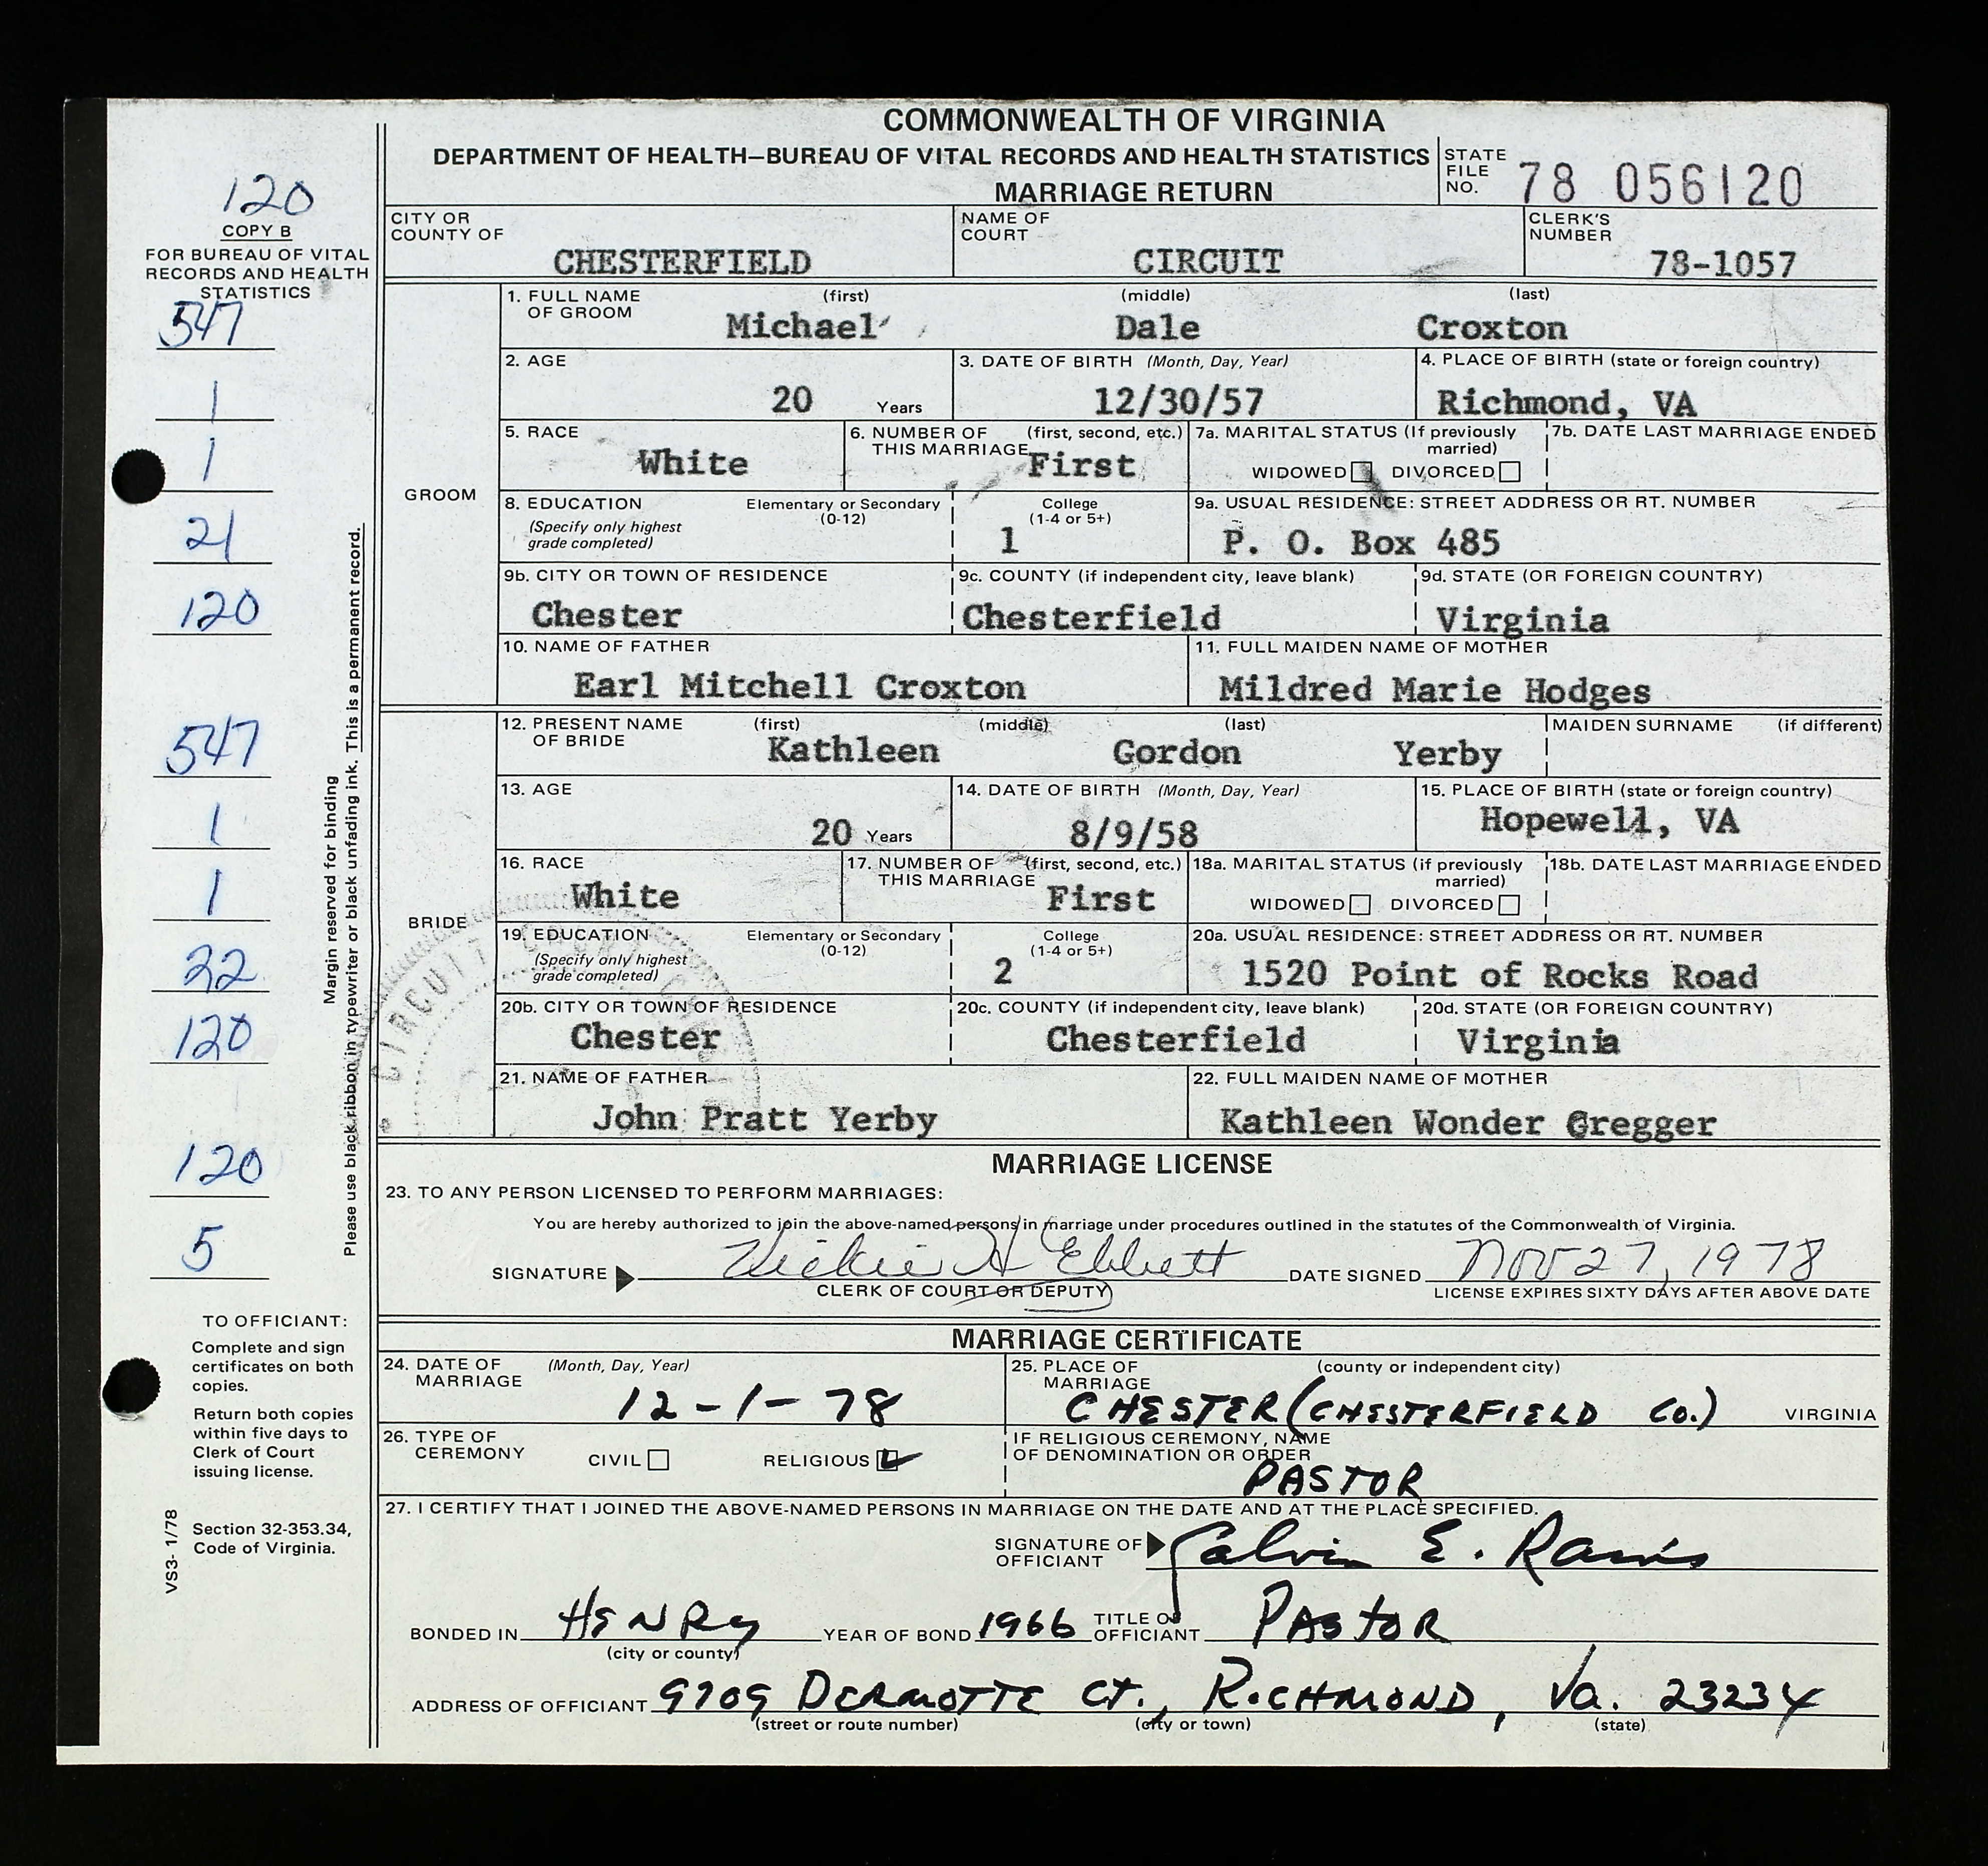 COMMONWEALTH OF VIRGINIA
DEPARTMENT OF HEALTH—BUREAU OF VITAL RECORDS AND HEALTH STATISTICS
MARRIAGE RETURN
STATE FILE NO. 78 056120
120
COPY B
FOR BUREAU OF VITAL
RECORDS AND HEALTH
STATISTICS
547
1
1
21
120
547
1
1
22
120
120
5
Margin reserved for binding
Please use black ribbon in typewriter or black unfading ink. This is a permanent record.
TO OFFICIANT:
Complete and sign
certificates on both
copies.
Return both copies
within five days to
Clerk of Court
issuing license.
Section 32-353.34,
Code of Virginia.
VS3- 1/78
CITY OR COUNTY OF CHESTERFIELD
NAME OF COURT CIRCUIT
CLERK'S NUMBER 78-1057
GROOM
1. FULL NAME OF GROOM (first) (middle) (last)
Michael Dale Croxton
2. AGE 20 Years
3. DATE OF BIRTH (Month, Day, Year) 12/30/57
4. PLACE OF BIRTH (state or foreign country) Richmond, VA
5. RACE White
6. NUMBER OF THIS MARRIAGE (first, second, etc.) First
7a. MARITAL STATUS (If previously married) WIDOWED DIVORCED
7b. DATE LAST MARRIAGE ENDED
8. EDUCATION (Specify only highest grade completed) Elementary or Secondary (0-12) College (1-4 or 5+) 1
9a. USUAL RESIDENCE: STREET ADDRESS OR RT. NUMBER P. O. Box 485
9b. CITY OR TOWN OF RESIDENCE Chester
9c. COUNTY (if independent city, leave blank) Chesterfield
9d. STATE (OR FOREIGN COUNTRY) Virginia
10. NAME OF FATHER Earl Mitchell Croxton
11. FULL MAIDEN NAME OF MOTHER Mildred Marie Hodges
BRIDE
12. PRESENT NAME OF BRIDE (first) (middle) (last) MAIDEN SURNAME (if different)
Kathleen Gordon Yerby
13. AGE 20 Years
14. DATE OF BIRTH (Month, Day, Year) 8/9/58
15. PLACE OF BIRTH (state or foreign country) Hopewell, VA
16. RACE White
17. NUMBER OF THIS MARRIAGE (first, second, etc.) First
18a. MARITAL STATUS (if previously married) WIDOWED DIVORCED
18b. DATE LAST MARRIAGE ENDED
19. EDUCATION (Specify only highest grade completed) Elementary or Secondary (0-12) College (1-4 or 5+) 2
20a. USUAL RESIDENCE: STREET ADDRESS OR RT. NUMBER 1520 Point of Rocks Road
20b. CITY OR TOWN OF RESIDENCE Chester
20c. COUNTY (if independent city, leave blank) Chesterfield
20d. STATE (OR FOREIGN COUNTRY) Virginia
21. NAME OF FATHER John Pratt Yerby
22. FULL MAIDEN NAME OF MOTHER Kathleen Wonder Gregger
CIRCUIT
MARRIAGE LICENSE
23. TO ANY PERSON LICENSED TO PERFORM MARRIAGES:
You are hereby authorized to join the above-named persons in marriage under procedures outlined in the statutes of the Commonwealth of Virginia.
SIGNATURE Vickie H Ebbett DATE SIGNED Nov 27, 1978
CLERK OF COURT OR DEPUTY LICENSE EXPIRES SIXTY DAYS AFTER ABOVE DATE
MARRIAGE CERTIFICATE
24. DATE OF MARRIAGE (Month, Day, Year) 12-1-78
25. PLACE OF MARRIAGE (county or independent city) CHESTER (CHESTERFIELD CO.) VIRGINIA
26. TYPE OF CEREMONY CIVIL RELIGIOUS
IF RELIGIOUS CEREMONY, NAME OF DENOMINATION OR ORDER PASTOR
27. I CERTIFY THAT I JOINED THE ABOVE-NAMED PERSONS IN MARRIAGE ON THE DATE AND AT THE PLACE SPECIFIED.
SIGNATURE OF OFFICIANT Calvin E.
BONDED IN HENRY YEAR OF BOND 1966 TITLE OF OFFICIANT PASTOR
(city or county)
ADDRESS OF OFFICIANT 9709 DERMOTTE CT., RICHMOND, Va. 23234
(street or route number) (city or town) (state)